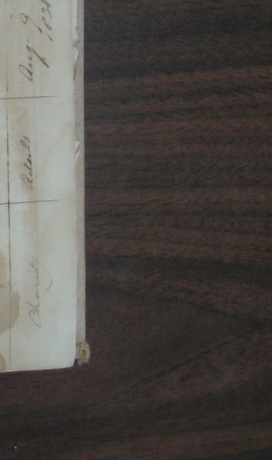 Charity Adult Aug 9
1838